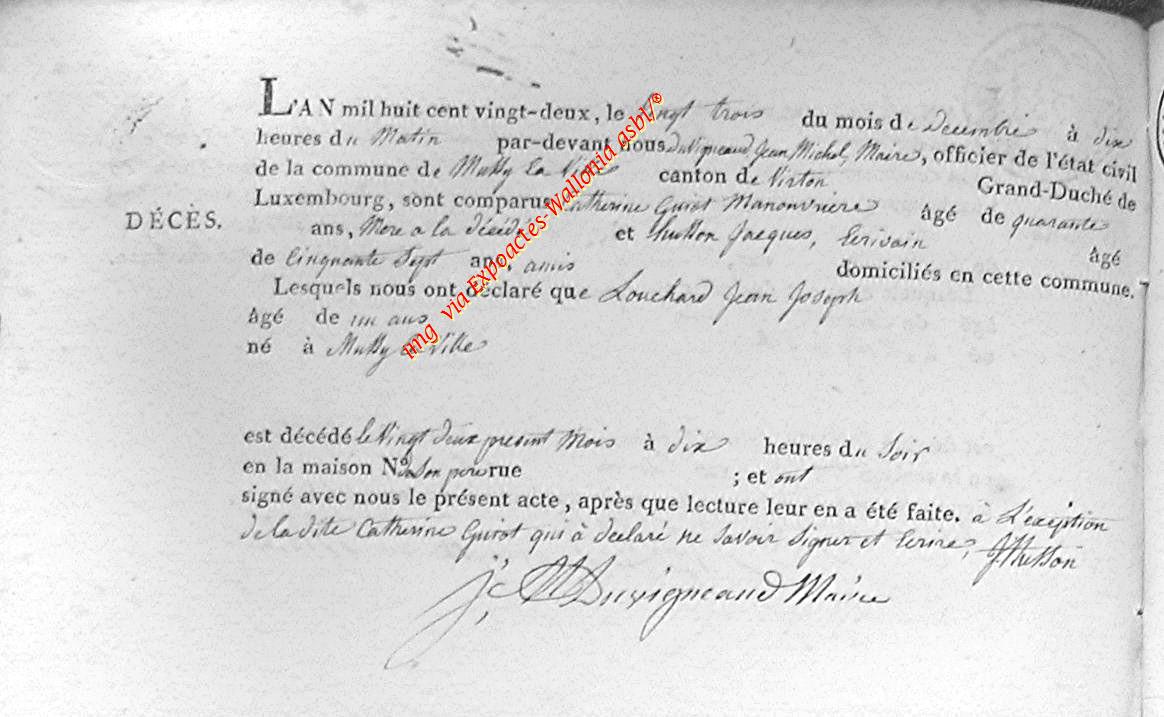 L'AN mil huit cent vingt-deux, le vingt trois du mois de Decembre à dix
heures du Matin par-devant nous duvigneaud Jean Michel, Maire, officier de l'état civil
de la commune de Mussy la Ville canton de Virton Grand-Duché de
Luxembourg, sont comparus Catherine Guiot Manouvriere âgé de quarante
DÉCÈS.
ans, Mere a la décédé et Husson Jacques, Ecrivain âgé
de Cinquante Sept ans, amis domiciliés en cette commune.
Lesquels nous ont déclaré que Louchard Jean Joseph
âgé de un ans
né à Mussy la Ville
est décédé le Vingt deux present Mois à dix heures du Soir
en la maison No. Son pere rue ; et ont
signé avec nous le présent acte, après que lecture leur en a été faite. à L'exception
de la dite Catherine Guiot qui à declaré ne Savoir Signer et Ecrire, JHusson
Duvigneaud Maire
img via Expoactes-Wallonia asbl/®